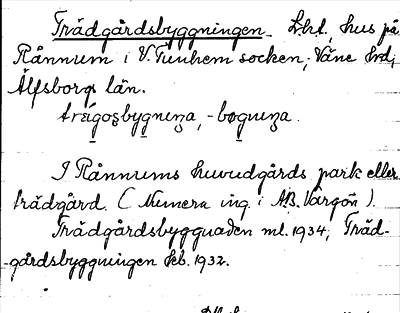 Trädgårdsbyggningen. Lht, hus på
Rånnum i V. Tunhem socken, Väne hd,
Älfsborgs län.
trägoșbygnıŋa, -bognıŋa.
I Rånnums huvudgårds park eller
trädgård. (Numera ing. i A.B. Vargön).
Trädgårdsbyggnaden ml. 1934, Träd-
-gårdsbyggningen kb. 1932.